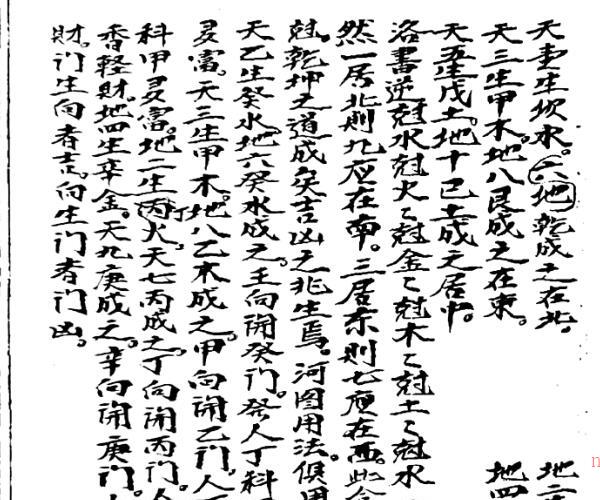 天壹生坎水。六地乾成之在北。 地二
天三生甲木。地八艮成之在東。 地四
天五生戊土。地十己土成之居中。
洛書逆尅水尅火〻尅金〻尅木〻尅土〻尅水
然一居北則九应在南。三居东則七應在西。此合
尅。乾坤之道成矣吉凶之兆生焉。河图用法。俱用
天乙生癸水。地六癸水成之。壬向開癸门。發人丁科
及富。天三生甲木。地八乙木成之。甲向開乙门。人丁
科甲及富。地二生丙丁火。天七丙成之。丁向開丙门。人
香輕财。地四生辛金。天九庚成之。辛向開庚门。
财。门生向者吉。向生门者门凶。